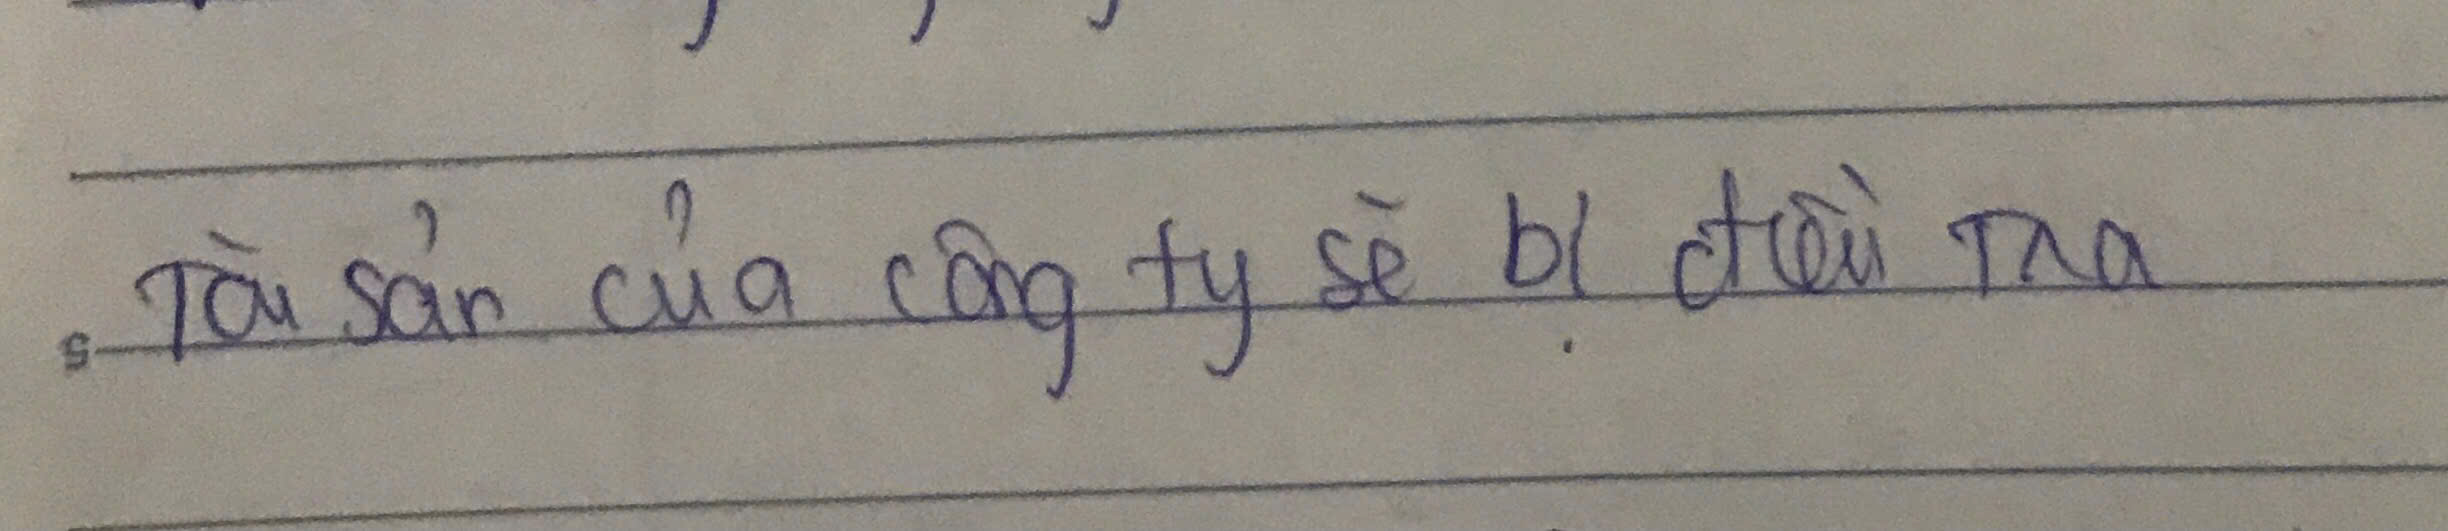 Tài sản của công ty sẽ bị điều tra